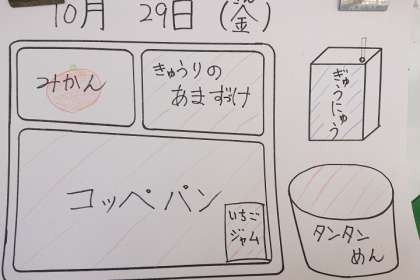 10月 29日 (金)
みかん
きゅうりの
あまずづけ
ぎゅうにゅう
コッペパン
いちご
ジャム
タンタン
めん